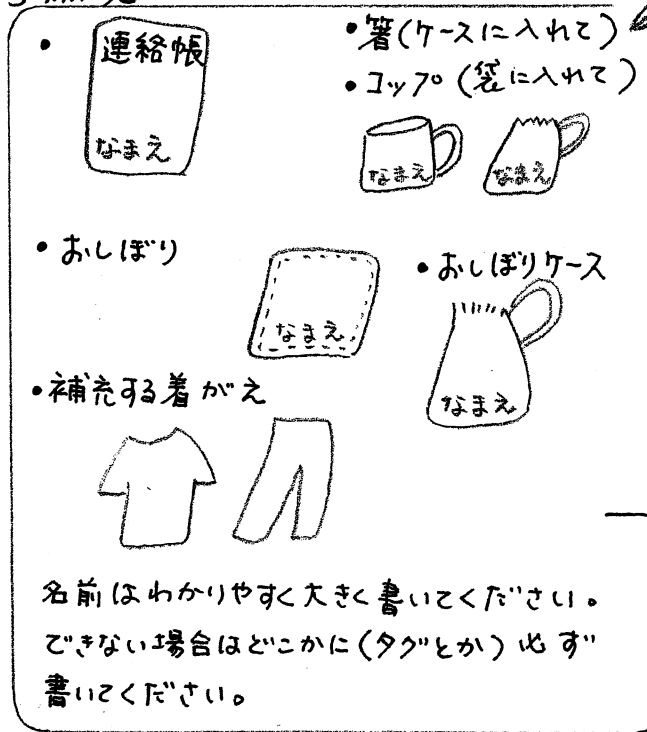 ・
連絡帳
なまえ
・箸(ケースに入れて)
・コップ(袋に入れて)
なまえ
なまえ
・おしぼり
なまえ
・おしぼりケース
なまえ
・補充する着がえ
名前はわかりやすく大きく書いてください。
できない場合はどこかに(タグとか)必ず
書いてください。